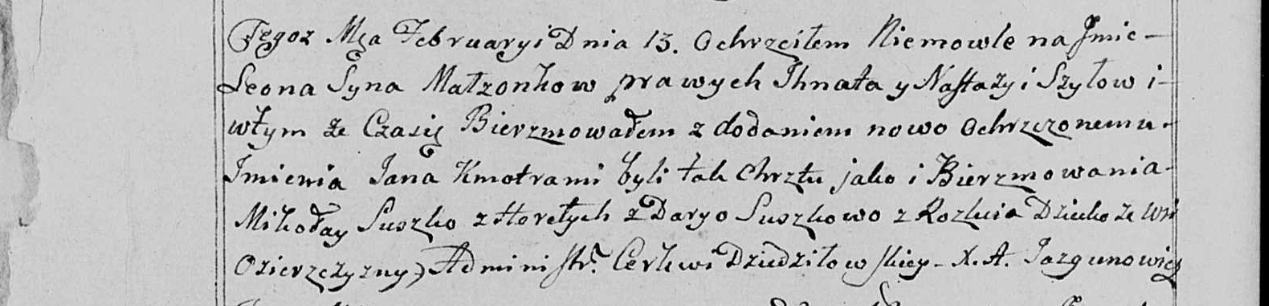 Tegoż Mca Februaryi Dnia 13. Ochrzciłem Niemowle na Jmie-
Leona Syna Małzonkow prawych Ihnata y Nastazyi Szyłow i-
wtym że Czasie Bierzmowałem z dodaniem nowo Ochrzczonemu.
Imienia Jana Kmotrami byli tak Chrztu jako i Bierzmowania
Mikołay Suszko z Horełych z Daryo Suszkowo z Rozlicia Dziecko ze Wsi
Ozierzczyzny) Administr. Cerkwi Dziedziłowskiey - X. A. Jazgunowicz